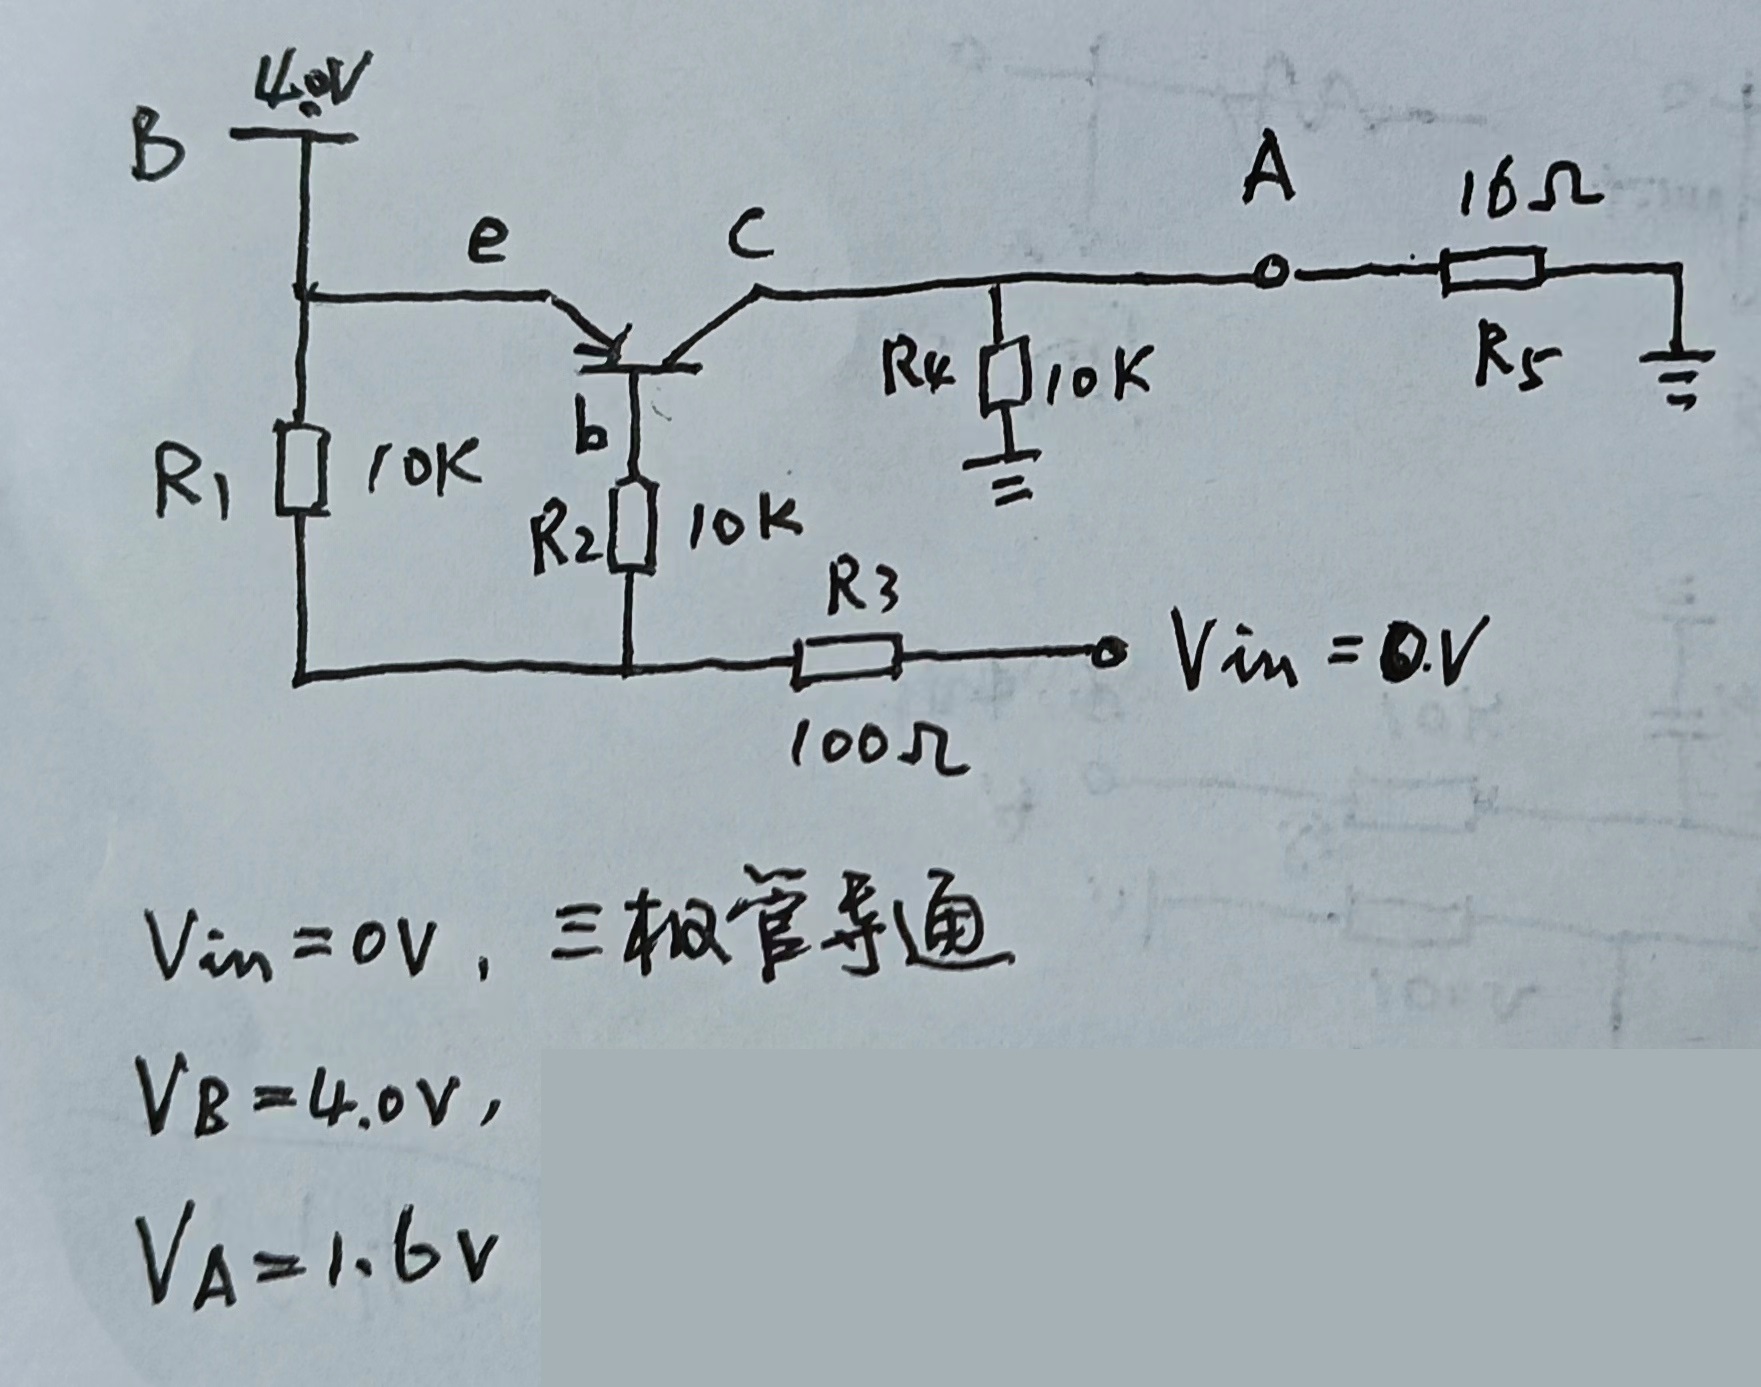 4.0V
B
A
16Ω
e
c
R4
10K
R5
b
R1
10K
R2
10K
R3
Vin=0.V
100Ω
Vin=0V，三极管导通
VB=4.0V，
VA=1.6V